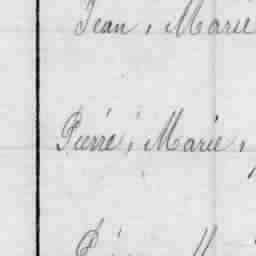 Jean, Marie
Pierre, Marie,